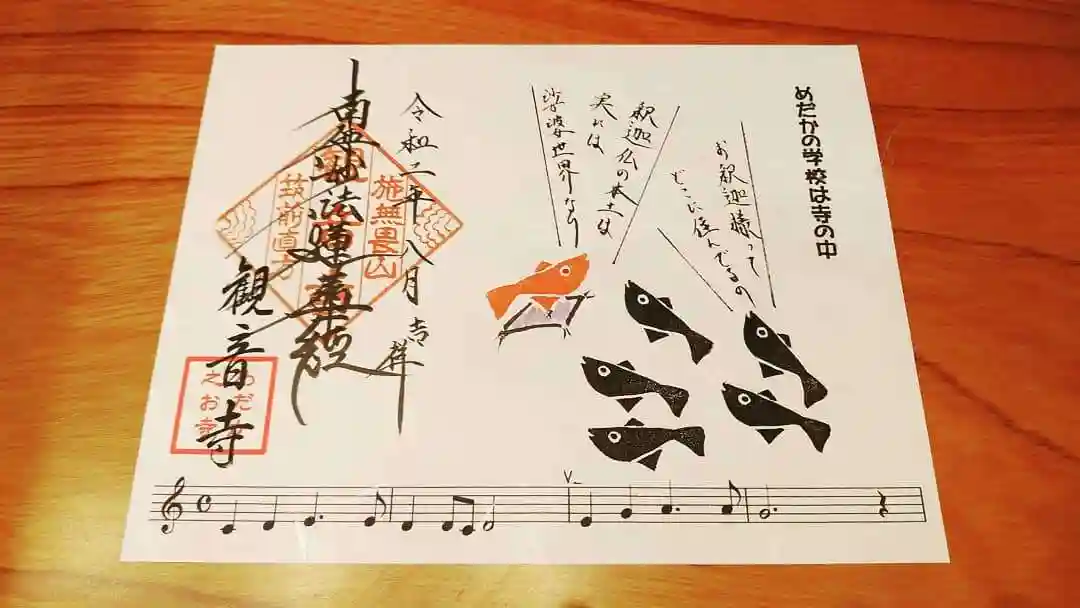 めだかの学校は寺の中
お釈迦様って
どこに住んでるの
釈迦仏の本土は
実には
娑婆世界なり
令和二年八月吉祥
南無妙法蓮華経
施無畏山
筑前直方
観音寺
めだか
之お寺